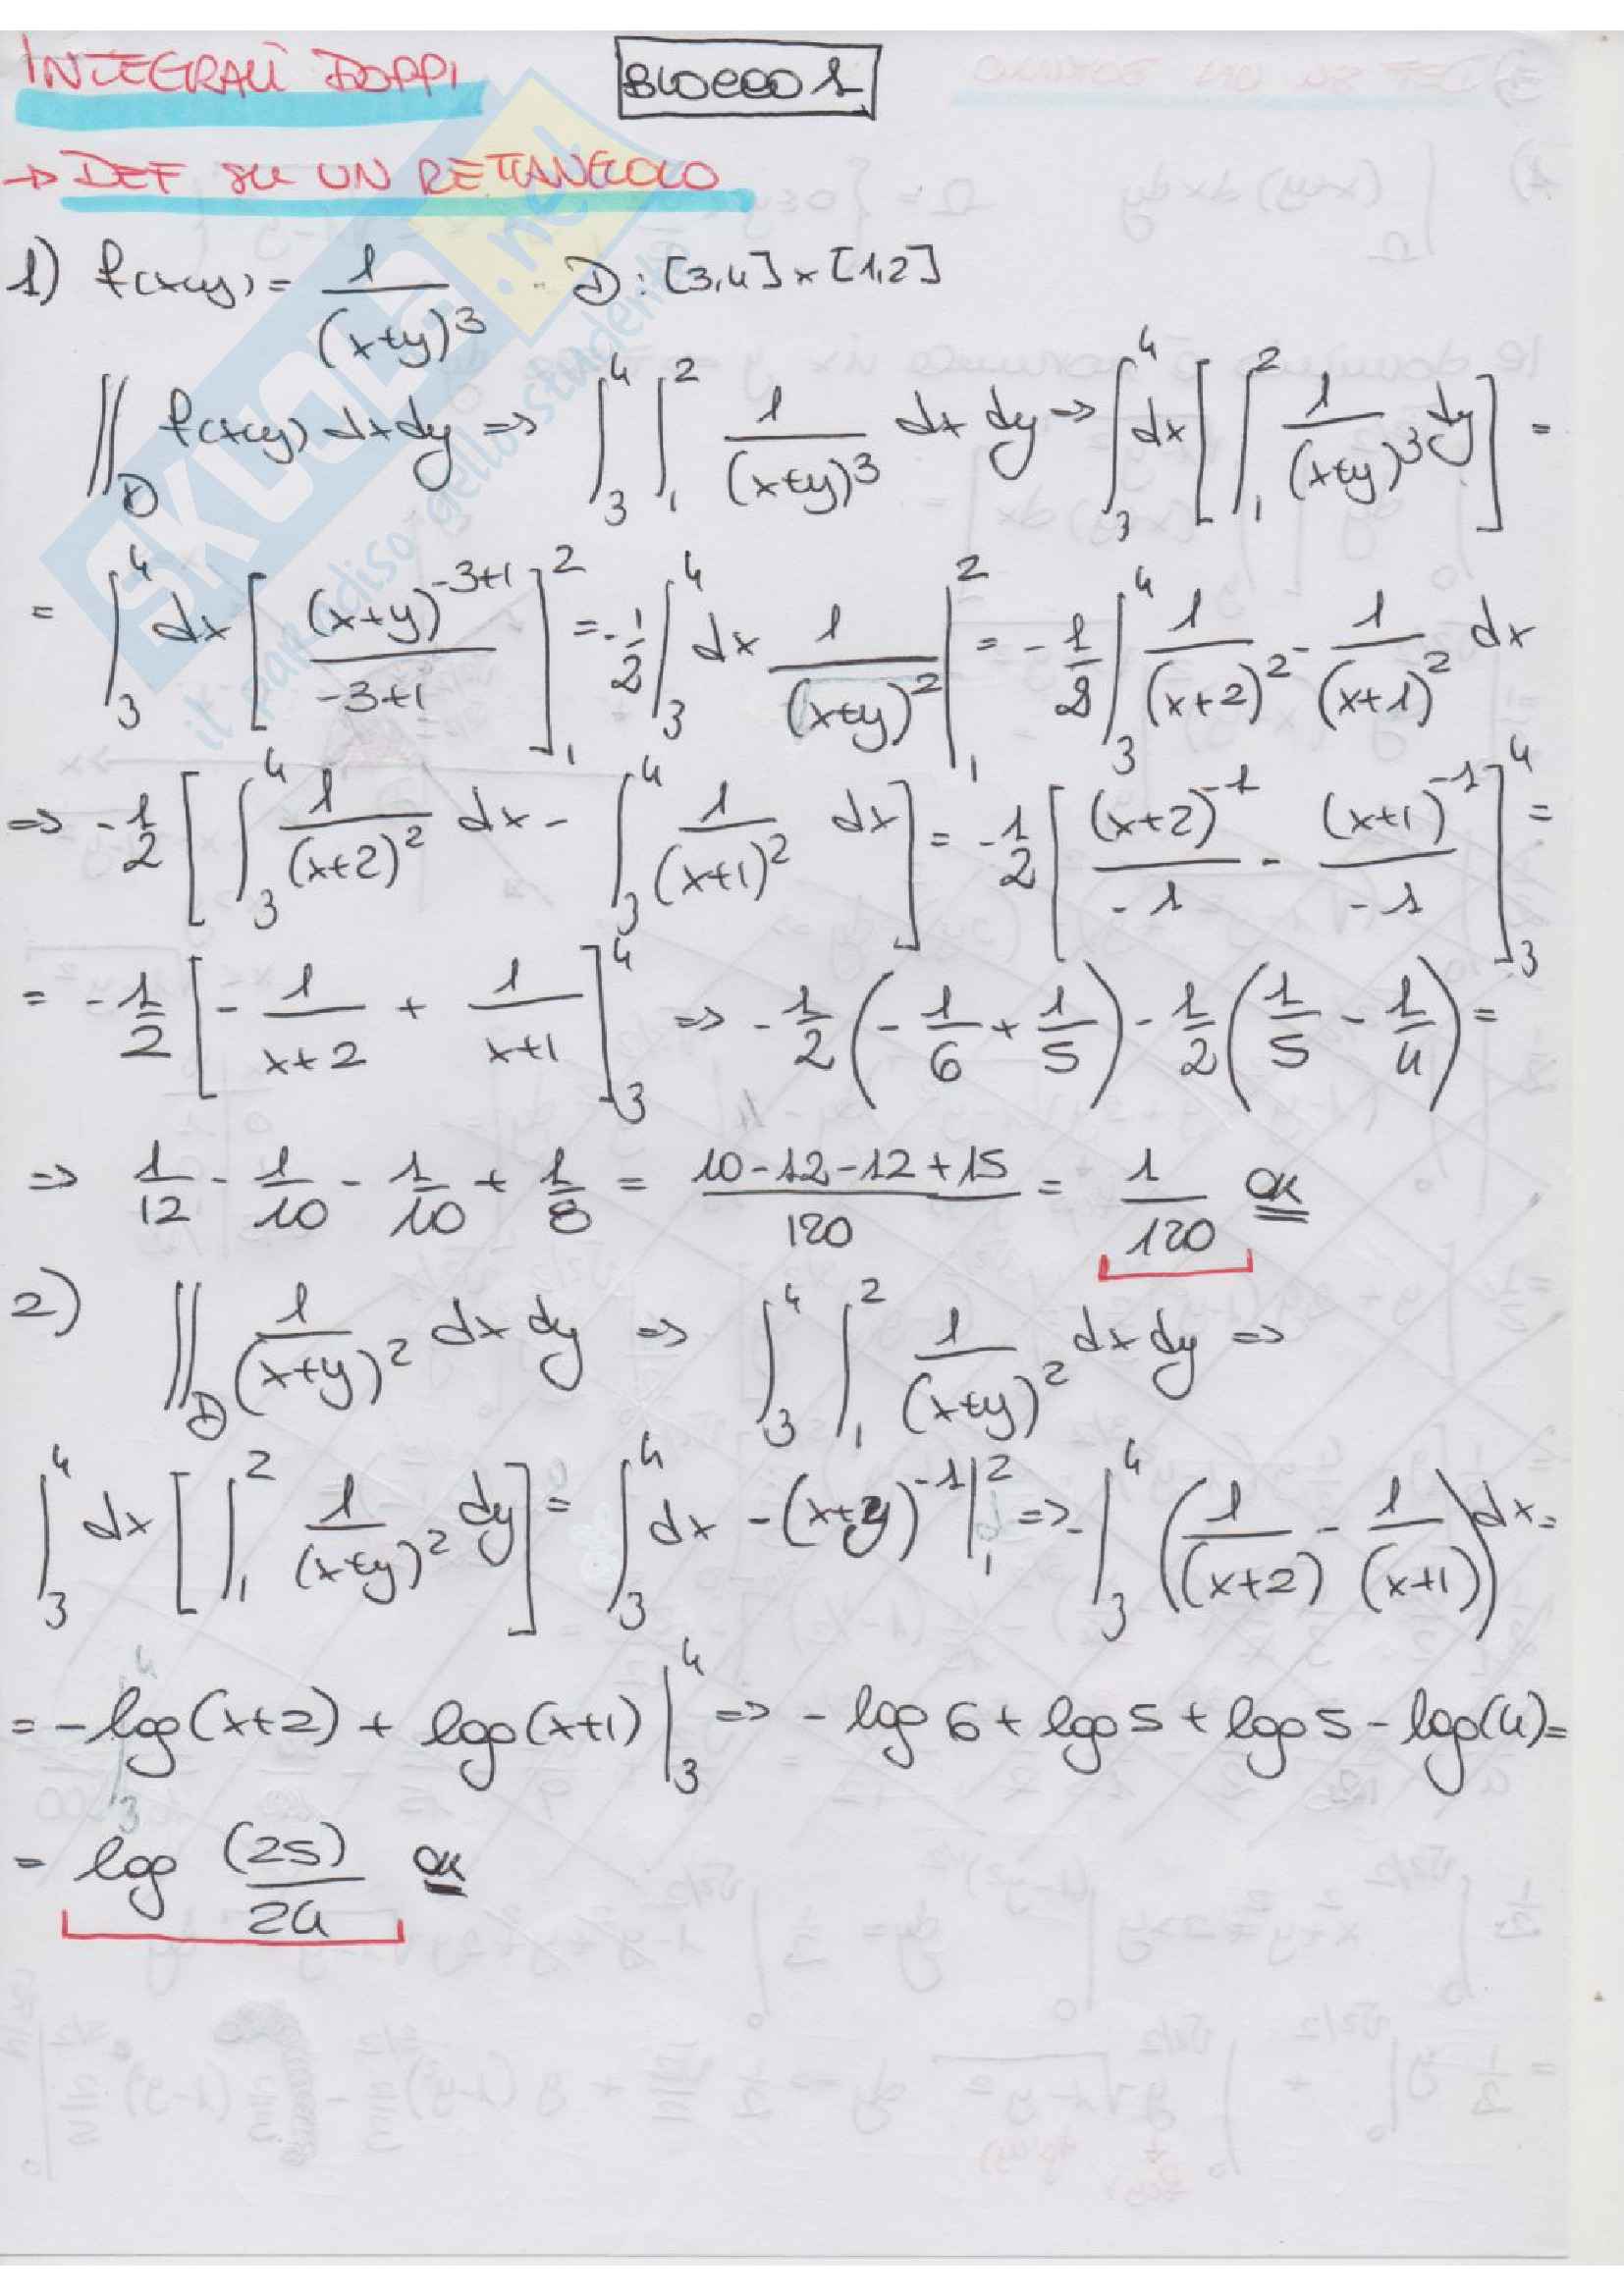 INTEGRALI DOPPI BLOCCO 1
→ DEF SU UN RETTANGOLO
1) f(x,y) = 1/(x+y)^3 D: [3,4] × [1,2]
∬_D f(x,y) dx dy => ∫_3^4 ∫_1^2 1/(x+y)^3 dx dy => ∫_3^4 dx [ ∫_1^2 1/(x+y)^3 dy ] =
= ∫_3^4 dx [ (x+y)^(-3+1) / (-3+1) ]_1^2 = -1/2 ∫_3^4 dx 1/(x+y)^2 |_1^2 = -1/2 ∫_3^4 1/(x+2)^2 - 1/(x+1)^2 dx
=> -1/2 [ ∫_3^4 1/(x+2)^2 dx - ∫_3^4 1/(x+1)^2 dx ] = -1/2 [ (x+2)^-1 / -1 - (x+1)^-1 / -1 ]_3^4 =
= -1/2 [ -1/(x+2) + 1/(x+1) ]_3^4 => -1/2 ( -1/6 + 1/5 ) - 1/2 ( 1/5 - 1/4 ) =
=> 1/12 - 1/10 - 1/10 + 1/8 = (10-12-12+15)/120 = 1/120 OK
2) ∬_D 1/(x+y)^2 dx dy => ∫_3^4 ∫_1^2 1/(x+y)^2 dx dy =>
∫_3^4 dx [ ∫_1^2 1/(x+y)^2 dy ] = ∫_3^4 dx -(x+y)^-1 |_1^2 => - ∫_3^4 ( 1/(x+2) - 1/(x+1) ) dx =
= -log(x+2) + log(x+1) |_3^4 => -log 6 + log 5 + log 5 - log(4) =
= log (25)/24 OK
SKUOLA.net
il paradiso dello studente